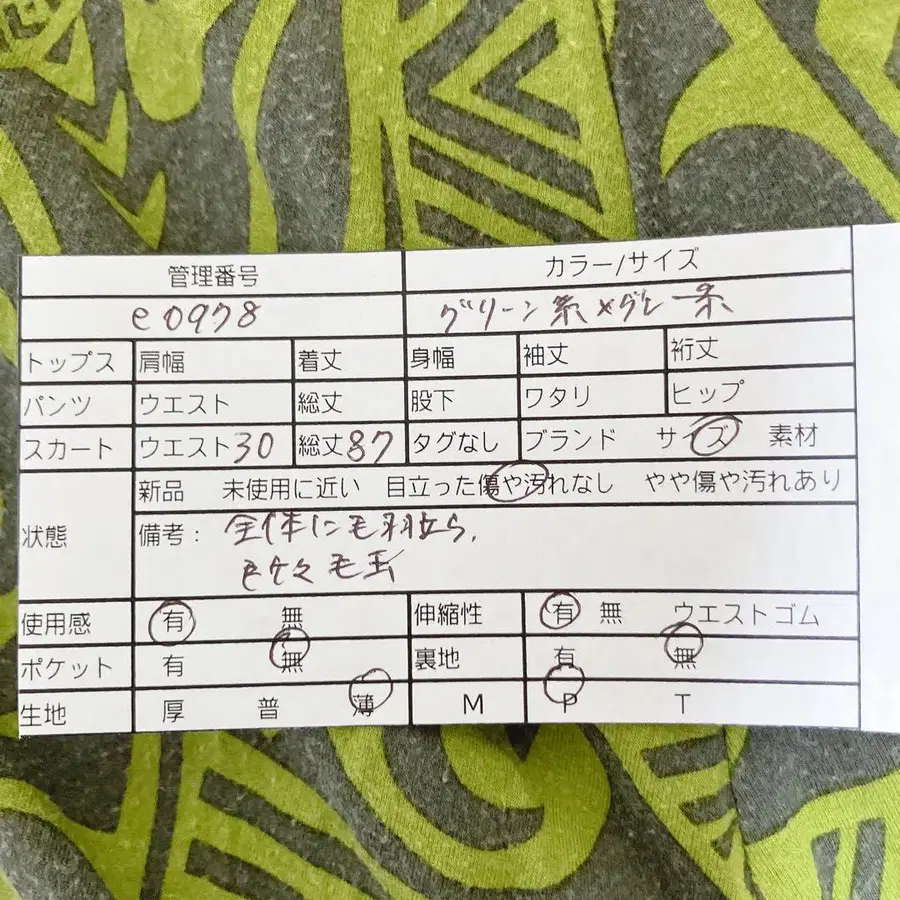 管理番号 カラー/サイズ
e0978 グリーン系×グレー系
トップス 肩幅 着丈 身幅 袖丈 裄丈
パンツ ウエスト 総丈 股下 ワタリ ヒップ
スカート ウエスト30 総丈87 タグなし ブランド サイズ 素材
新品 未使用に近い 目立った傷や汚れなし やや傷や汚れあり
状態 備考: 全体に毛羽立ち、
所々毛玉
使用感 有 無 伸縮性 有 無 ウエストゴム
ポケット 有 無 裏地 有 無
生地 厚 普 薄 M P T